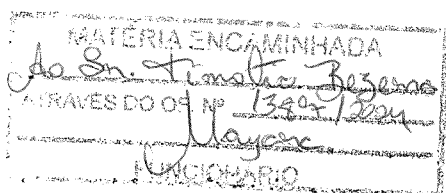 MATÉRIA ENCAMINHADA
Ao Sr. Timoteo Bezerra
ATRAVÉS DO OF Nº
Mayara
FUNCIONÁRIO